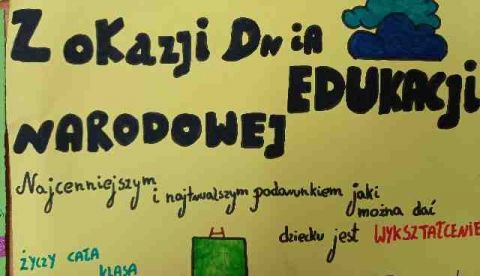 Z OKAZJI DNIA
EDUKACJI
NARODOWEJ
Najcenniejszym i najtrwalszym podarunkiem jaki
można dać
dziecku jest WYKSZTAŁCENIE
ŻYCZY CAŁA
KLASA